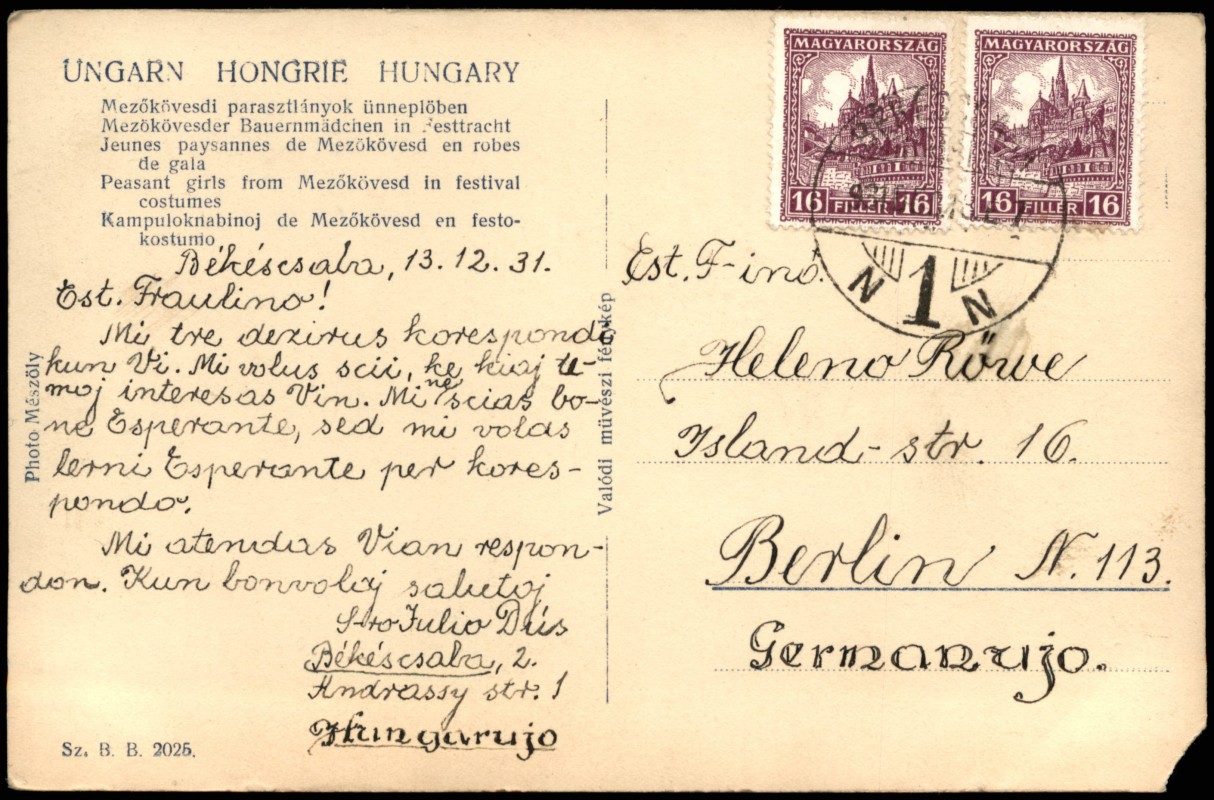 UNGARN HONGRIE HUNGARY
Mezőkövesdi parasztlányok ünneplőben
Mezőkövesder Bauernmädchen in Festtracht
Jeunes paysannes de Mezőkövesd en robes
de gala
Peasant girls from Mezőkövesd in festival
costumes
Kampuloknabinoj de Mezőkövesd en festo-
kostumo
Békéscsaba, 13.12.31.
Est. Fraulino!
Mi tre dezirus korespondi
kun Vi. Mi volus scii, ke kiaj te-
moj interesas Vin. Mi ne scias bo-
ne Esperante, sed mi volas
lerni Esperante per kores-
pondo.
Mi atendas Vian respon-
don. Kun bonvolaj salutoj
S-ro Julio Dús
Békéscsaba, 2.
Andrassy str. 1
Hungarujo
Sz. B. B. 2025.
Photo Mészöly
Valódi művészi fénykép
MAGYARORSZÁG
16 FILLÉR 16
MAGYARORSZÁG
16 FILLÉR 16
N 1 N
Est. F-ino.
Heleno Röwe
Island-str. 16.
Berlin N. 113.
Germanujo.